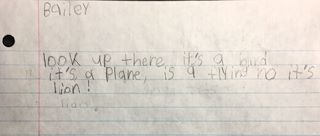 Bailey
look up there, it's a bird
it's a plane, is a flying no it's
lion!
lion.